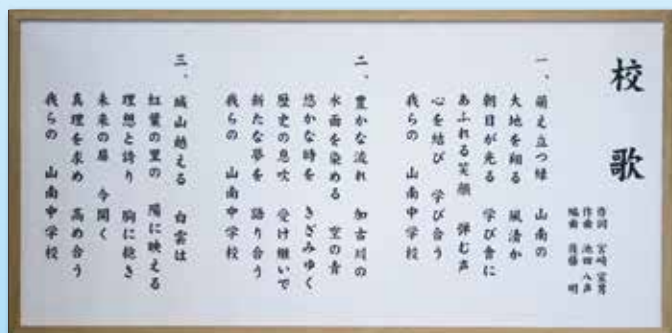 校歌
作詞 宮崎宣男
作曲 池田八声
編曲 後藤 明
一、萌え立つ緑 山南の
大地を翔る 風清か
朝日が光る 学び舎に
あふれる笑顔 弾む声
心を結び 学び合う
我らの 山南中学校
二、豊かな流れ 加古川の
水面を染める 空の青
悠かな時を きざみゆく
歴史の息吹 受け継いで
新たな夢を 語り合う
我らの 山南中学校
三、城山越える 白雲は
紅葉の里の 陽に映える
理想と誇り 胸に抱き
未来の扉 今開く
真理を求め 高め合う
我らの 山南中学校